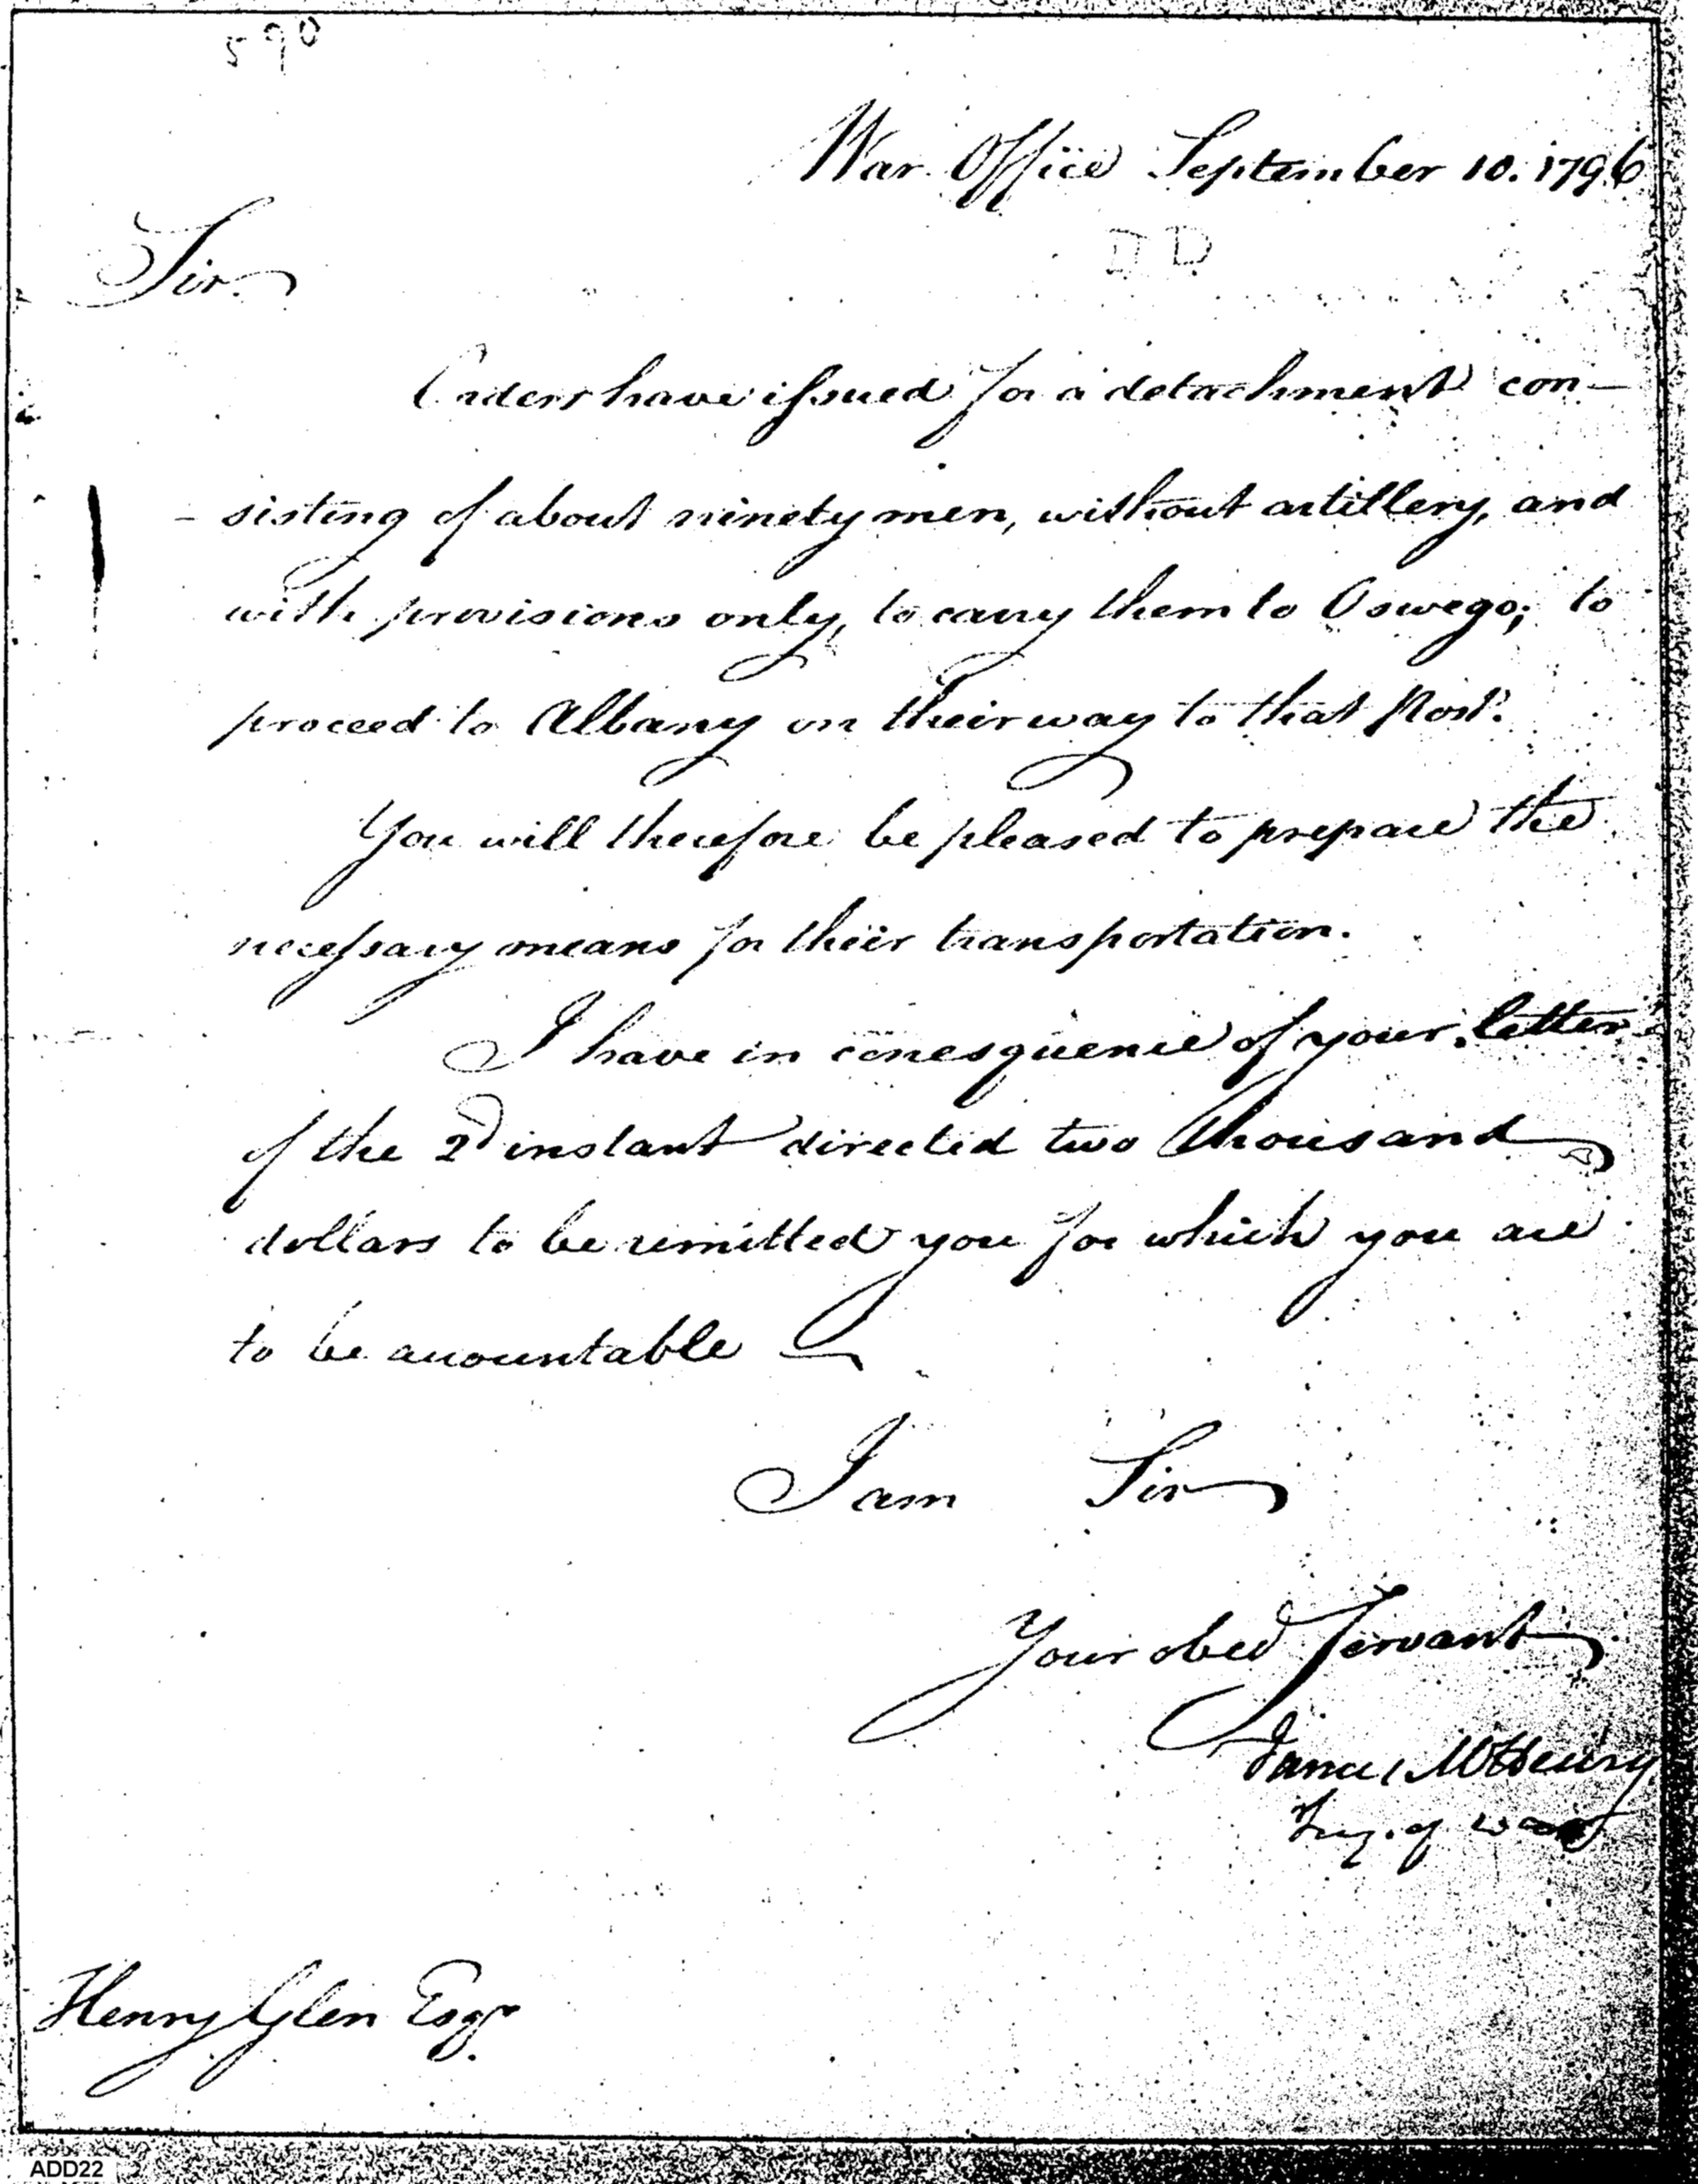 290
War Office September 10. 1796
DD
Sir
Orders have issued for a detachment con-
-sisting of about ninety men, without artillery, and
with provisions only, to carry them to Oswego; to
proceed to Albany on their way to that Post.
You will therefore be pleased to prepare the
necessary means for their transportation.
I have in conesquence of your letter
of the 2d instant directed two thousand
dollars to be remitted you for which you are
to be accountable
I am Sir
Your obed Servant
James McHenry
Secy. of War
Henry Glen Esqr.
ADD22